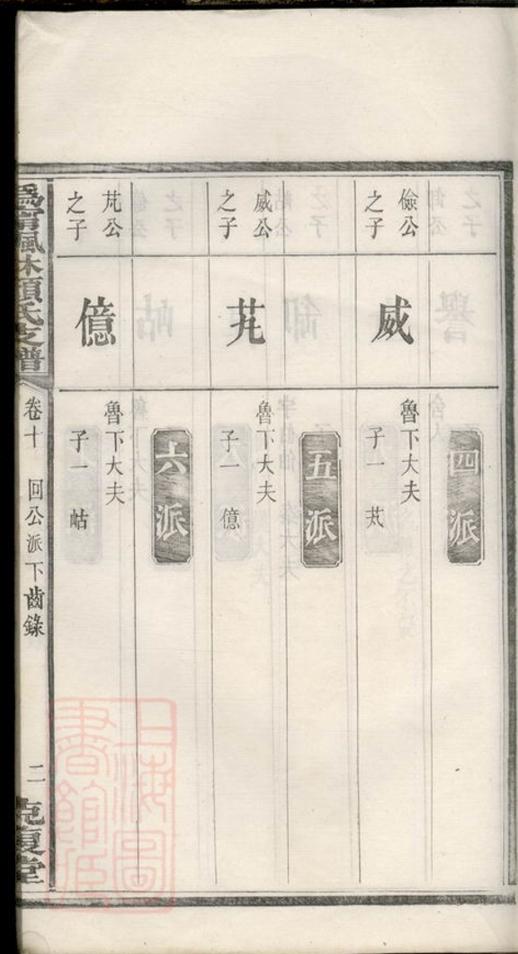 四派
儉公
之子
威
魯下大夫
子一 芃
五派
威公
之子
芃
魯下大夫
子一 億
六派
芃公
之子
億
魯下大夫
子一 岵
甯楓林顏氏支譜
卷十 回公派下齒錄
二
克復堂
上海圖
書館藏